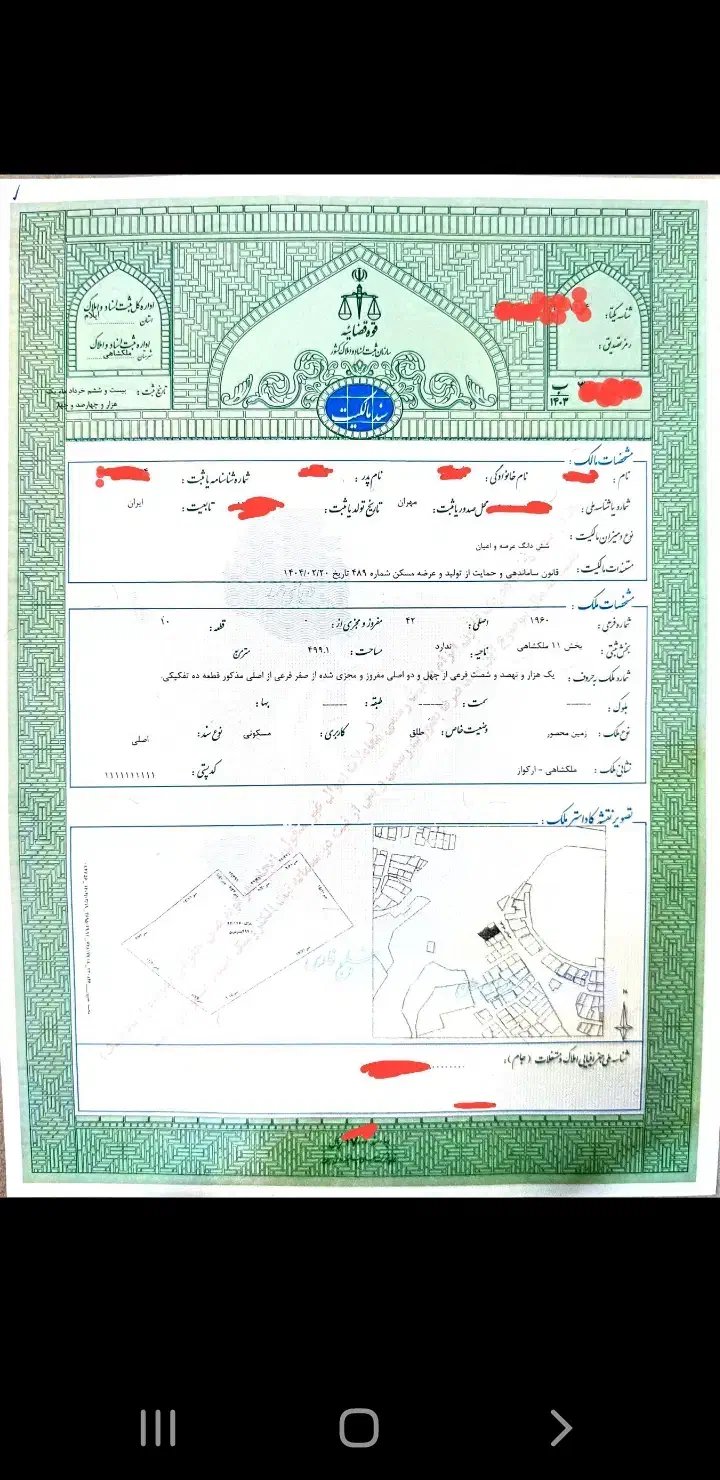 قوه قضائیه
سازمان ثبت اسناد و املاک کشور
سند مالکیت
شناسه یکتا:
رمز تصدیق:
ب
۱۴۰۳
اداره کل ثبت اسناد و املاک
استان ایلام
اداره ثبت اسناد و املاک
شهرستان ملکشاهی
تاریخ ثبت: بیست و ششم خرداد ماه یک
هزار و چهارصد و چهار
مشخصات مالک:
نام: نام خانوادگی: نام پدر: شماره شناسنامه یا ثبت:
شماره یا شناسه ملی: محل صدور یا ثبت: مهران تاریخ تولد یا ثبت: تابعیت: ایران
نوع و میزان مالکیت: شش دانگ عرصه و اعیان
مستندات مالکیت: قانون ساماندهی و حمایت از تولید و عرضه مسکن شماره ۴۸۹ تاریخ ۱۴۰۴/۰۲/۲۰
مشخصات ملک:
شماره فرعی: ۱۹۶۰ اصلی: ۴۲ مفروز و مجزی از: ۰ قطعه: ۱۰
بخش ثبتی: بخش ۱۱ ملکشاهی ناحیه: ندارد مساحت: ۴۹۹.۱ مترمربع
شماره ملک به حروف: یک هزار و نهصد و شصت فرعی از چهل و دو اصلی مفروز و مجزی شده از صفر فرعی از اصلی مذکور قطعه ده تفکیکی
بلوک: ------ سمت: ------ طبقه: ------ بها:
نوع ملک: زمین محصور وضعیت خاص: طلق کاربری: مسکونی نوع سند: اصلی
نشانی ملک: ملکشاهی - ارکواز کدپستی: ۱۱۱۱۱۱۱۱۱۱
تصویر نقشه کاداستر ملک:
N
شناسه ملی جغرافیایی املاک و مستغلات (جام):